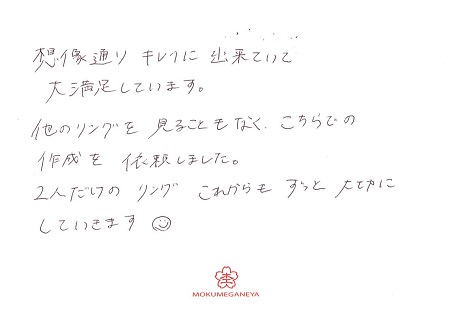 想像通り キレイに 出来ていて
大満足しています。
他のリングを 見ることもなく、こちらでの
作成を 依頼しました。
2人だけの リング これからも ずっと 大切に
していきます
MOKUMEGANEYA